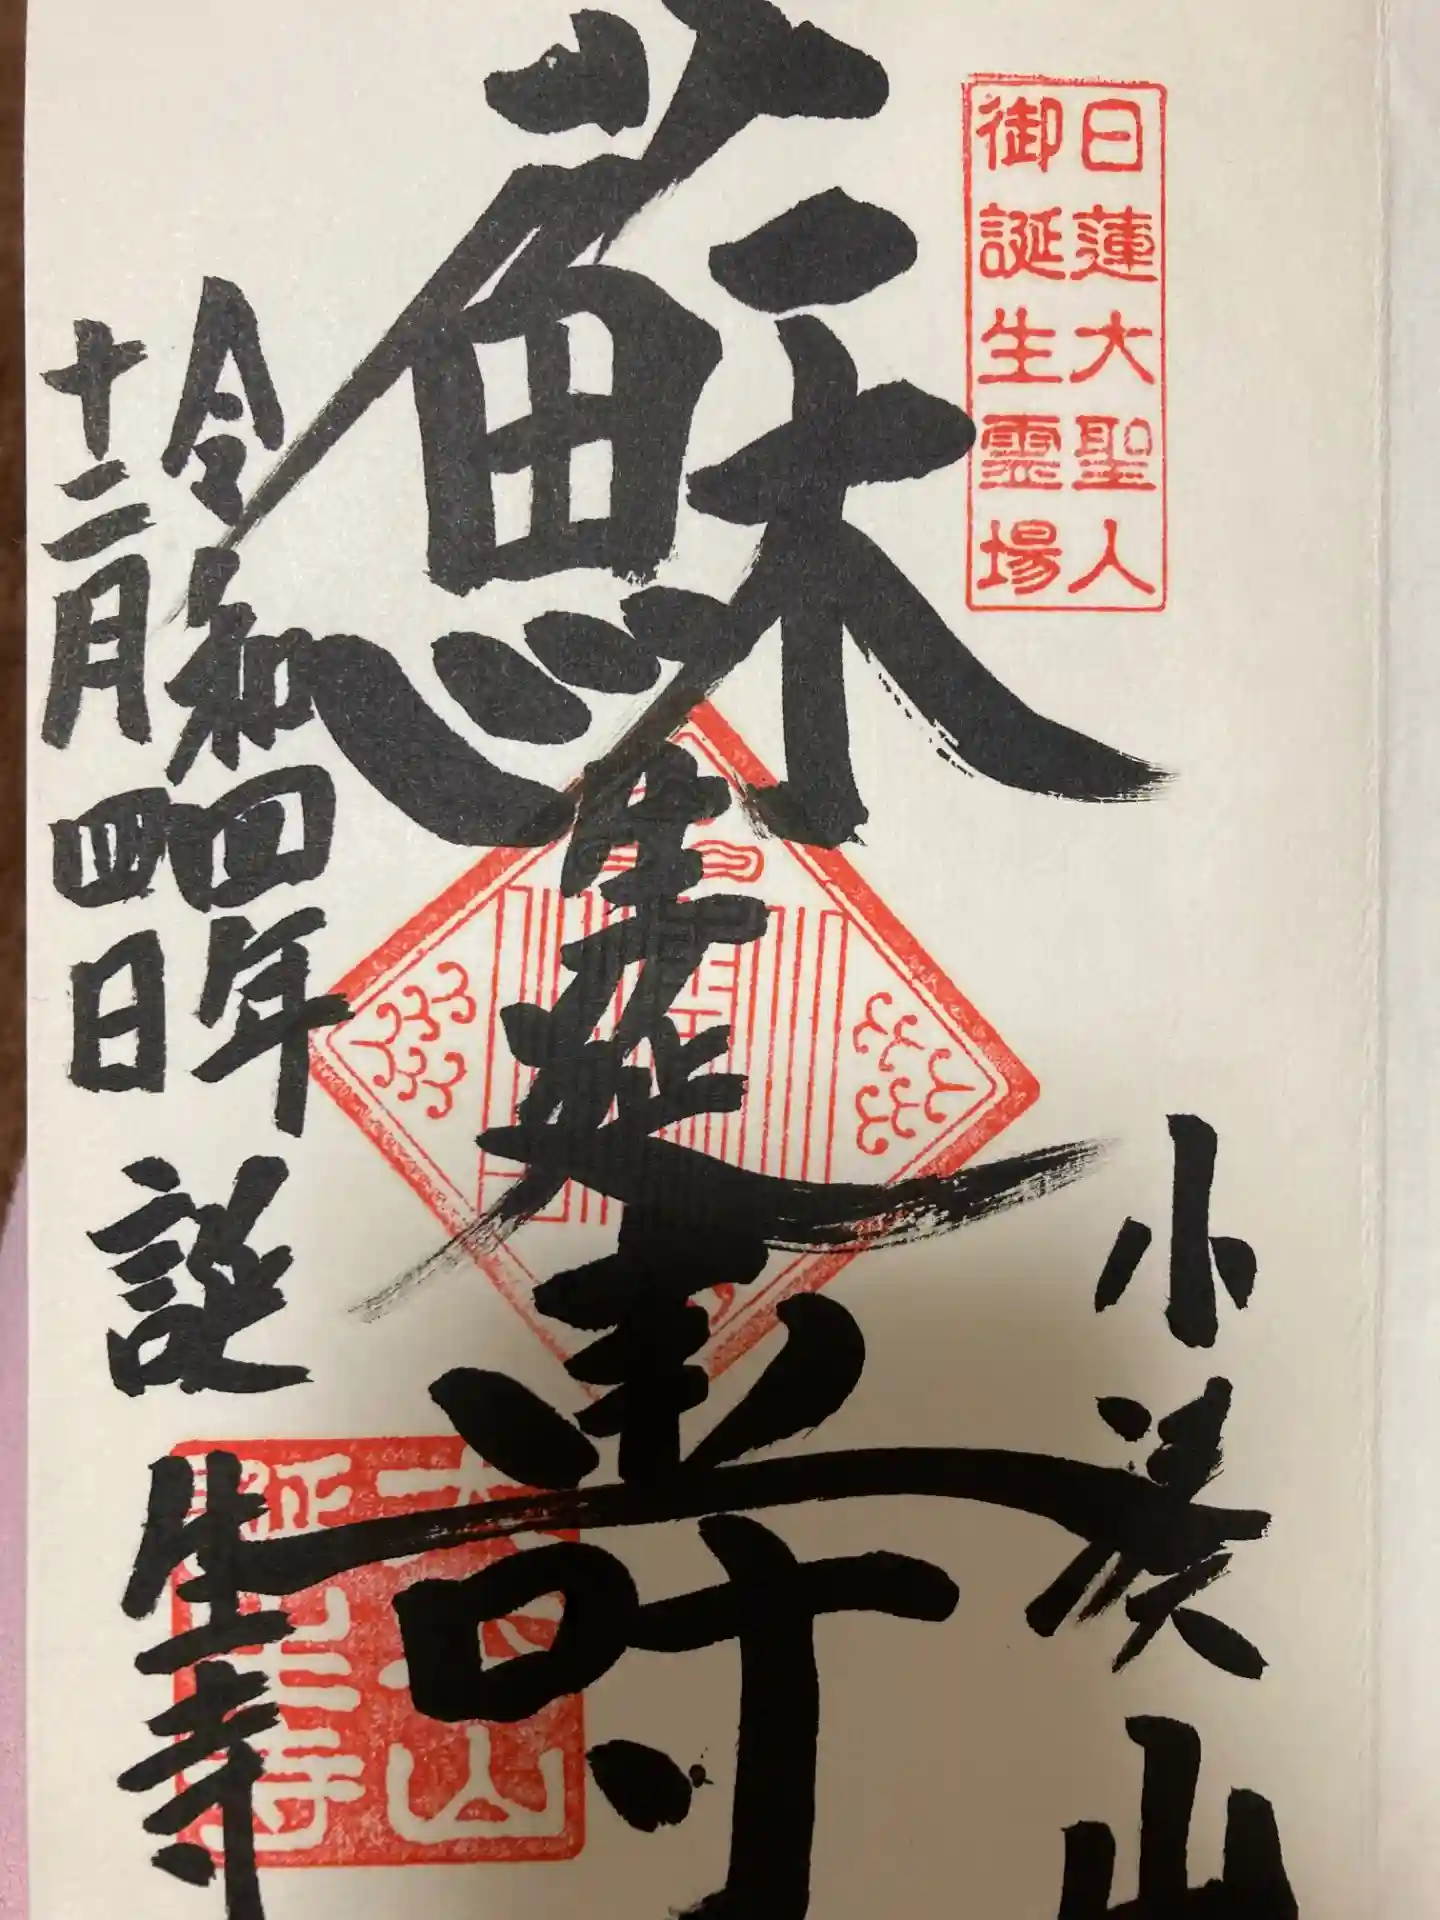 日蓮大聖人
御誕生霊場
小湊山
蘇生延壽
令和四年
十二月四日
誕生寺
大本山
誕生寺